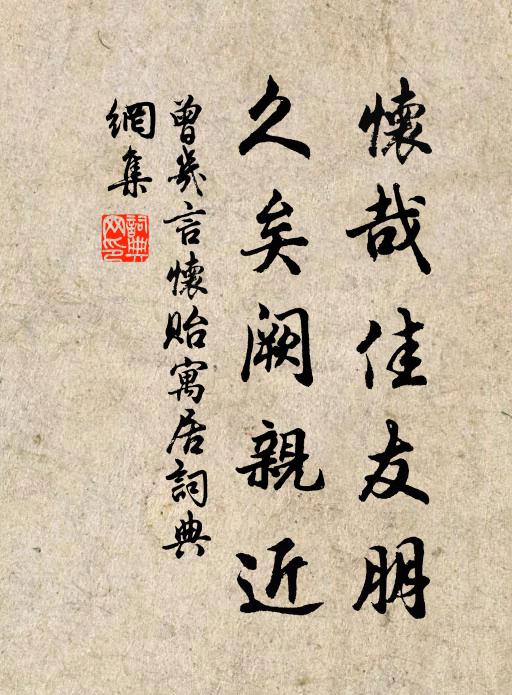 懷哉佳友朋
久矣阙親近
曾幾言懷貽寓居詞典
網集
詞典
网印